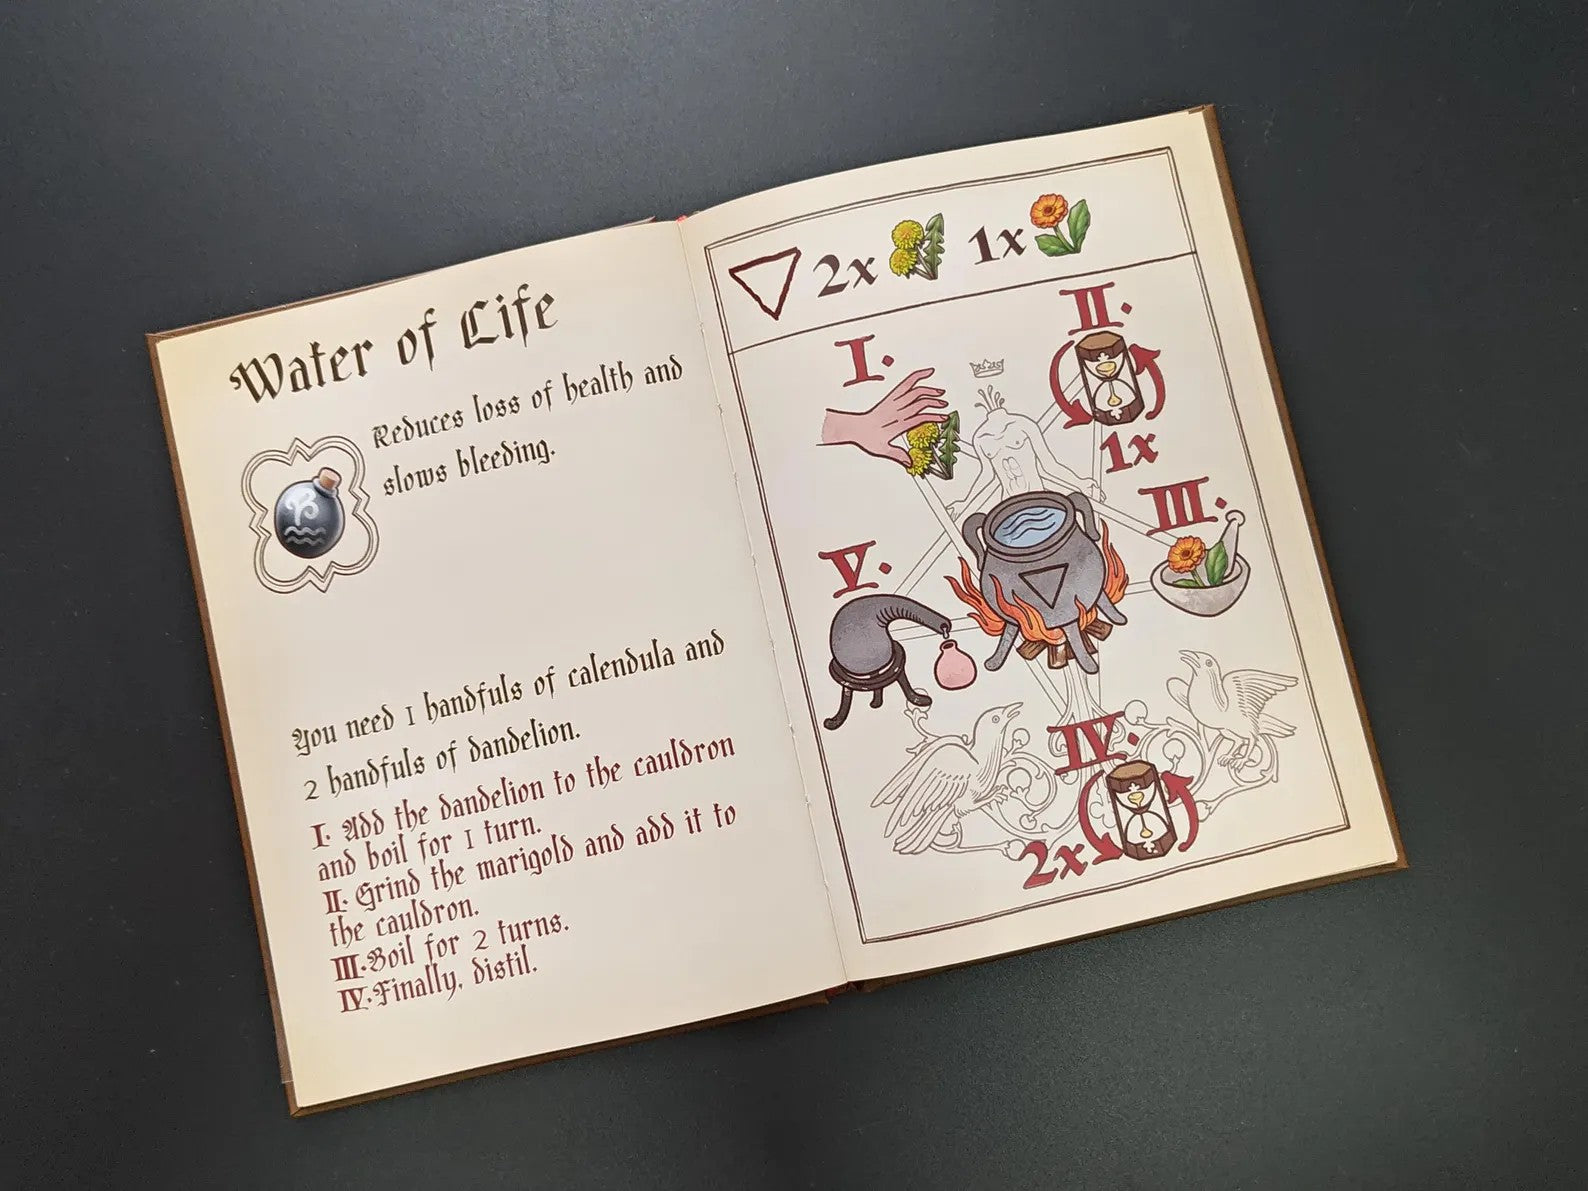 Water of Life
Reduces loss of health and
slows bleeding.
You need 1 handfuls of calendula and
2 handfuls of dandelion.
I. Add the dandelion to the cauldron
and boil for 1 turn.
II. Grind the marigold and add it to
the cauldron.
III. Boil for 2 turns.
IV. Finally, distil.
2x 1x
I.
II.
1x
III.
V.
IV.
2x